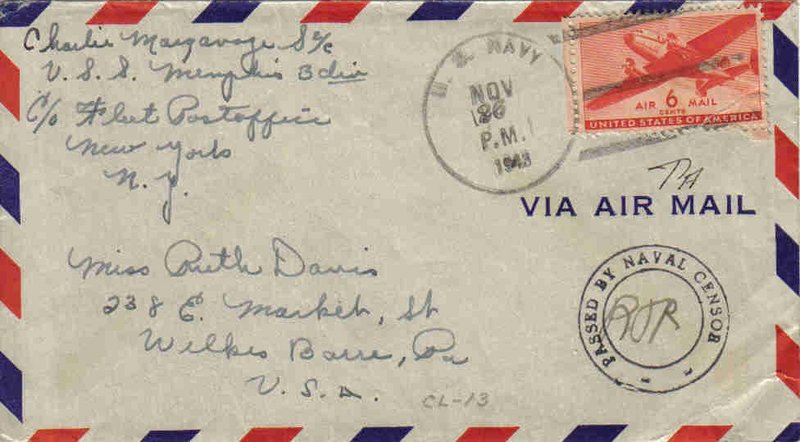 Charlie Margavage S1/c
U.S.S. Memphis 3 div
C/o Fleet Postoffice
New York
N.Y.
U.S. NAVY
NOV
26
P.M.
1943
AIR 6 MAIL
CENTS
UNITED STATES OF AMERICA
VIA AIR MAIL
PASSED BY NAVAL CENSOR
Miss Ruth Davis
238 E. Market, St
Wilkes Barre, Pa
U.S.A.
CL-13